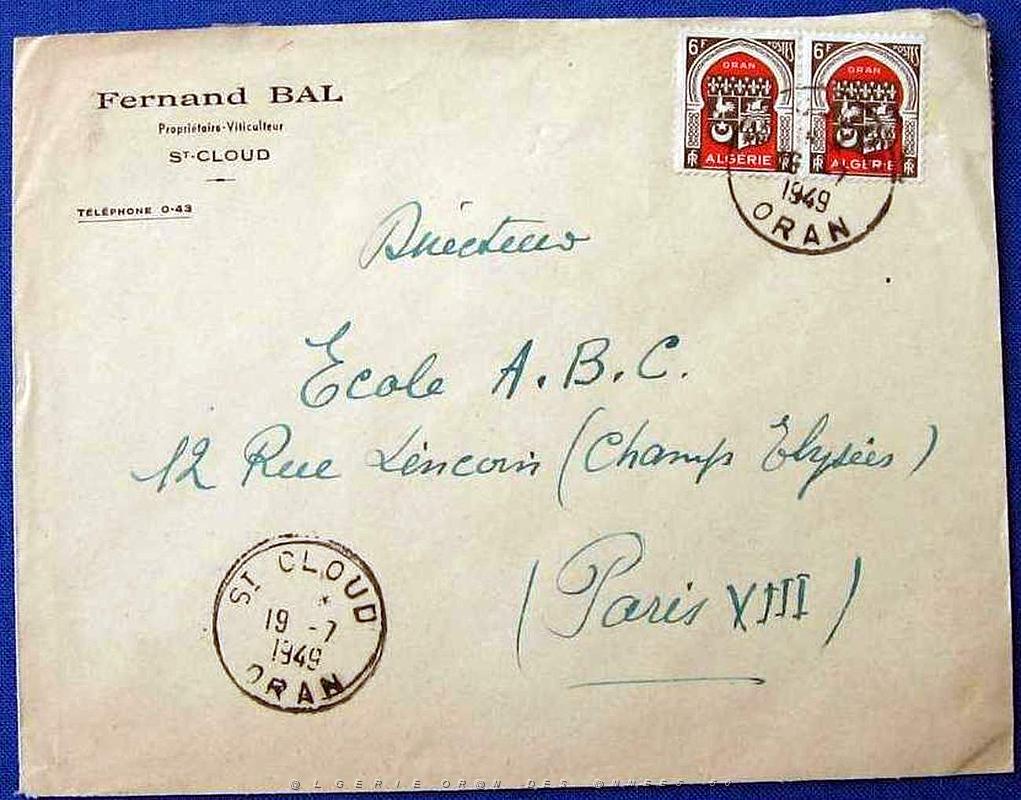 Fernand BAL
Propriétaire-Viticulteur
ST-CLOUD
TÉLÉPHONE 0-43
6F POSTES
ORAN
RF ALGÉRIE RF
6F POSTES
ORAN
RF ALGÉRIE RF
1949
ORAN
Directeur
Ecole A.B.C.
12 Rue Lincoin (Champs Elysées)
(Paris XIII)
ST CLOUD
*
19 -7
1949
ORAN
@LGERIE OR@N DES @NNEES 50